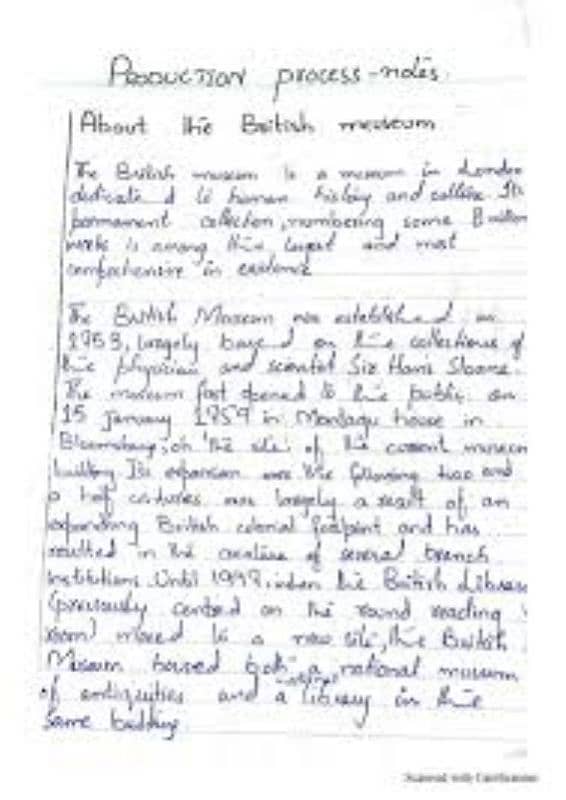 PRODUCTION process-notes.
About the British museum
The British museum is a museum in London
dedicate d to human history and culture. Its
permanent collection, numbering some 8 million
works is among the largest and most
comprehensive in existence
The British Museum was established in
1753, largely based on the collections of
the physician and scientist Sir Hans Sloane.
The museum first opened to the public on
15 January 1759 in Montagu house in
Bloomsbury, on the site of the current museum
building Its expansion over the following two and
a half centuries was largely a result of an
expanding British colonial footprint and has
resulted in the creation of several branch
institutions. Until 1997, when the British Library
(previously centred on the round reading
room) moved to a new site, the British
Museum housed both a national museum
of antiquities and a national library in the
same building.
Scanned with CamScanner